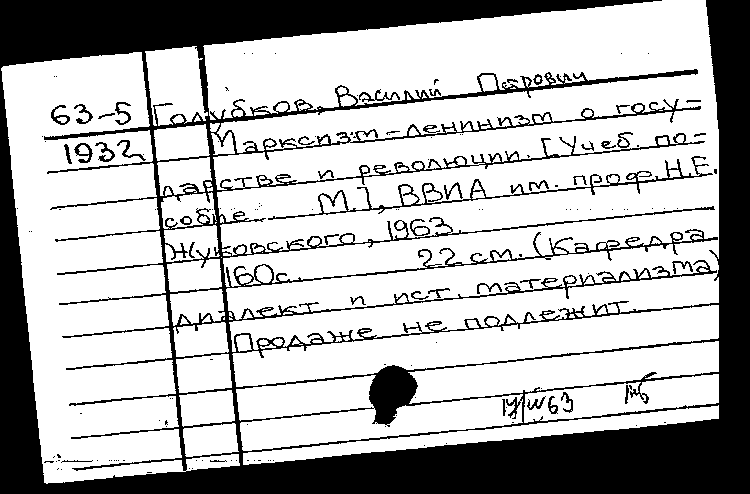 63-5 Голубков, Василий Петрович
1932 Марксизм-ленинизм о госу-
дарстве и революции. [Учеб. по-
собие. М.], ВВИА им. проф. Н.Е.
Жуковского, 1963.
160с. 22 см. (Кафедра
диалект. и ист. материализма)
Продаже не подлежит.
63